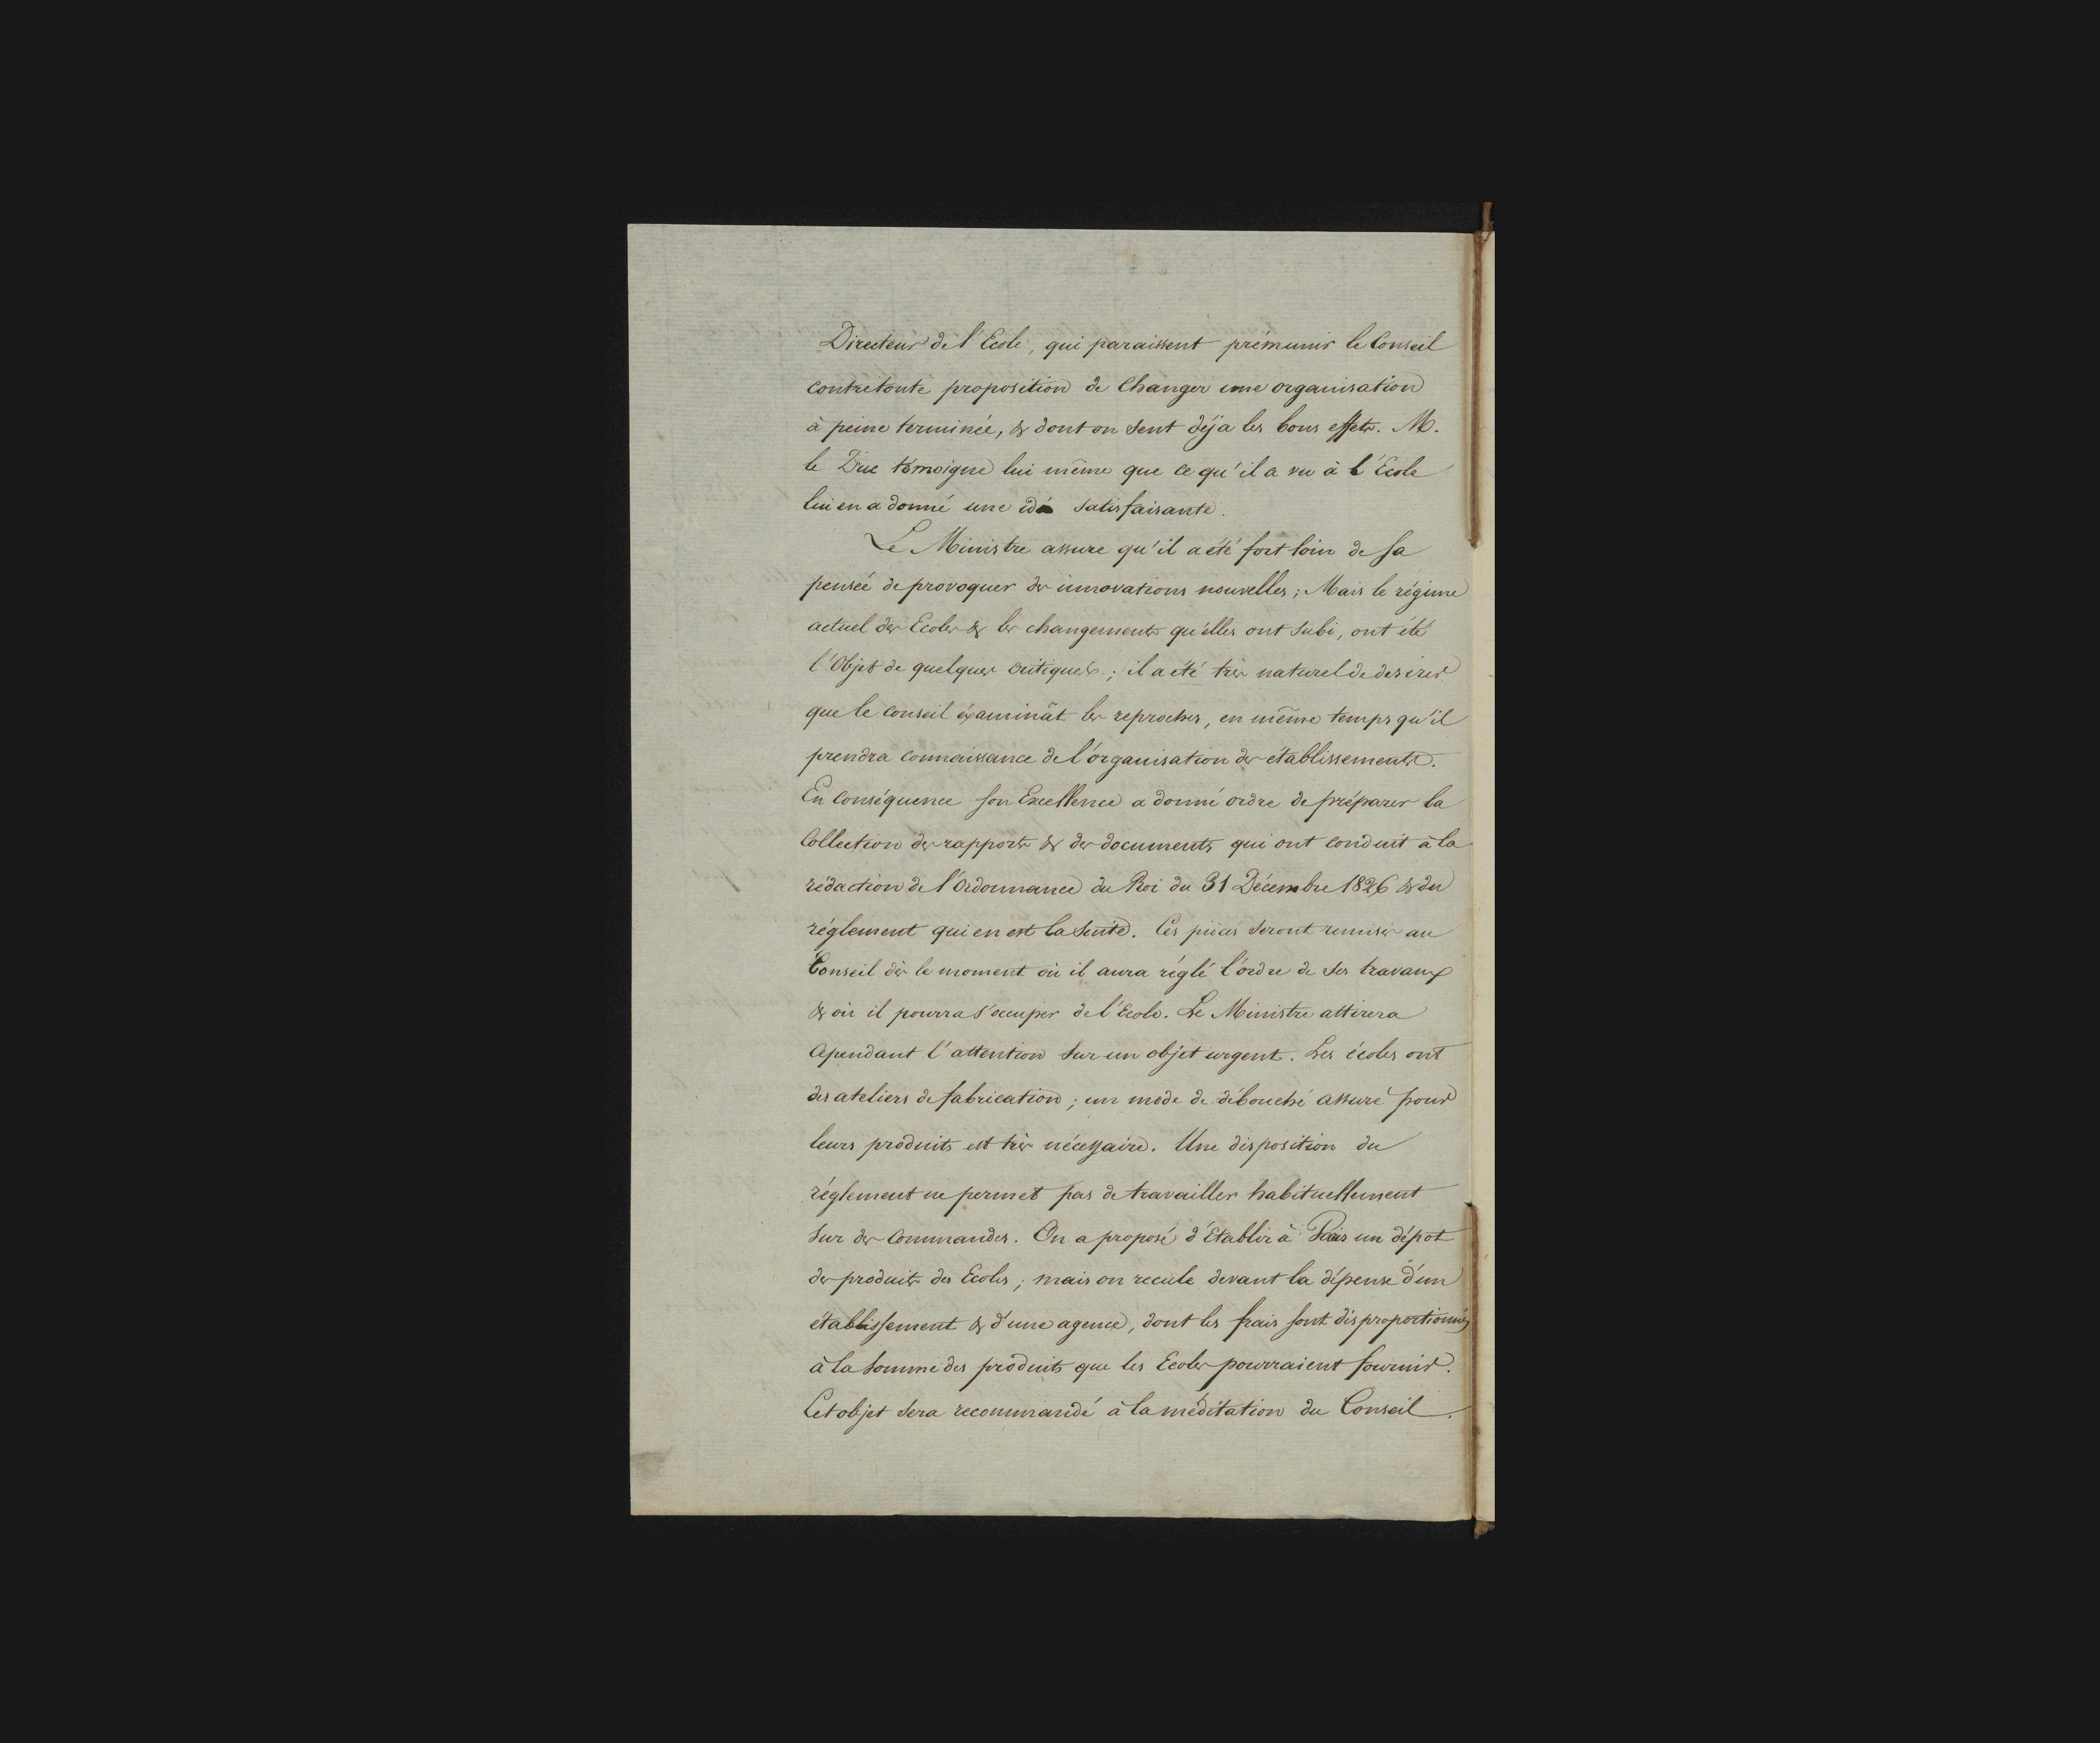 Directeur de l'Ecole, qui paraissent prémunir le Conseil
contre toute proposition de Changer une organisation
à peine terminée, & dont on sent déja les bons effets. M.
le Duc témoigne lui même que ce qu'il a vu à l'Ecole
lui en a donné une idée satisfaisante.
Le Ministre assure qu'il a été fort loin de sa
pensée de provoquer des innovations nouvelles ; Mais le régime
actuel des Ecoles & les changements qu'elles ont subi, ont été
l'Objet de quelques critiques ; il a été très naturel de desirer
que le conseil éxaminât les reproches, en même temps qu'il
prendra connaissance de l'organisation des établissements.
En Conséquence son Excellence a donné ordre de préparer la
Collection des rapports & des documents qui ont conduit à la
rédaction de l'Ordonnance du Roi du 31 Décembre 1826 & du
réglement qui en est la suite. Ces pièces seront remises au
Conseil dès le moment où il aura réglé l'ordre de ses travaux
& où il pourra s'occuper de l'Ecole. Le Ministre attirera
cependant l'attention sur un objet urgent. Les écoles ont
des ateliers de fabrication ; un mode de débouché assuré pour
leurs produits est très nécessaire. Une disposition du
réglement ne permet pas de travailler habituellement
sur des Commandes. On a proposé d'établir à Paris un dépot
des produits des Ecoles ; mais on recule devant la dépense d'un
établissement & d'une agence, dont les frais sont disproportionnés
à la somme des produits que les Ecoles pourraient fournir.
Cet objet sera recommandé à la méditation du Conseil.